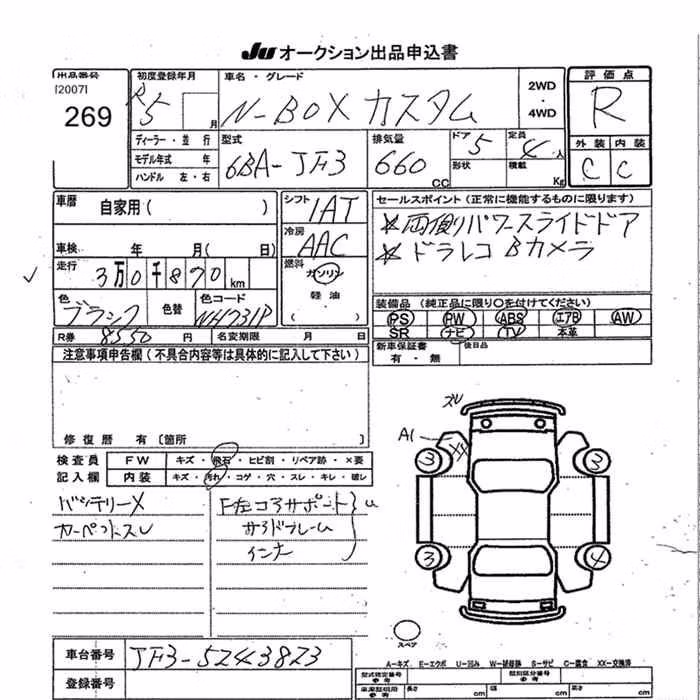 JU オークション出品申込書
出品番号
[2007]
269
初度登録年月
R5 月
ディーラー・並行
モデル年式 年
ハンドル 左・右
車名・グレード
N-BOX カスタム
2WD
・
4WD
型式
6BA-JF3
排気量
660 CC
ドア 5
形状
定員 4人
積載 Kg
評価点
R
外装 内装
C C
車歴 自家用( )
車検 年 月( 日)
走行 3万0千870km
色 ブラック
色替
色コード NH731P
シフト IAT
冷房 AAC
燃料 ガソリン
・
軽油
R券 8550円
名変期限 月 日
セールスポイント(正常に機能するものに限ります)
※両側パワースライドドア
※ドラレコ Bカメラ
装備品(純正品に限り○を付けてください)
PS PW ABS エアB AW
SR ナビ TV 本革
新車保証書 有・無
後日品
注意事項申告欄(不具合内容等は具体的に記入して下さい)
修復歴 有[箇所 ]
検査員 記入欄
FW キズ・飛石・ヒビ割・リペア跡・×要
内装 キズ・汚れ・コゲ・穴・スレ・キレ・破レ
バッテリーX
カーペットスレ
F左コアサポート
サイドフレーム
インナー
u
ズレ
A1
XX
3 3
3 4
スペア
車台番号 JF3-5243823
登録番号
A-キズ E-エクボ U-凹み W-補修跡 S-サビ C-腐食 XX-交換済
型式指定番号 参考
類別区分番号 参考
車庫証明用 参考
長さ cm 幅 cm 高さ cm